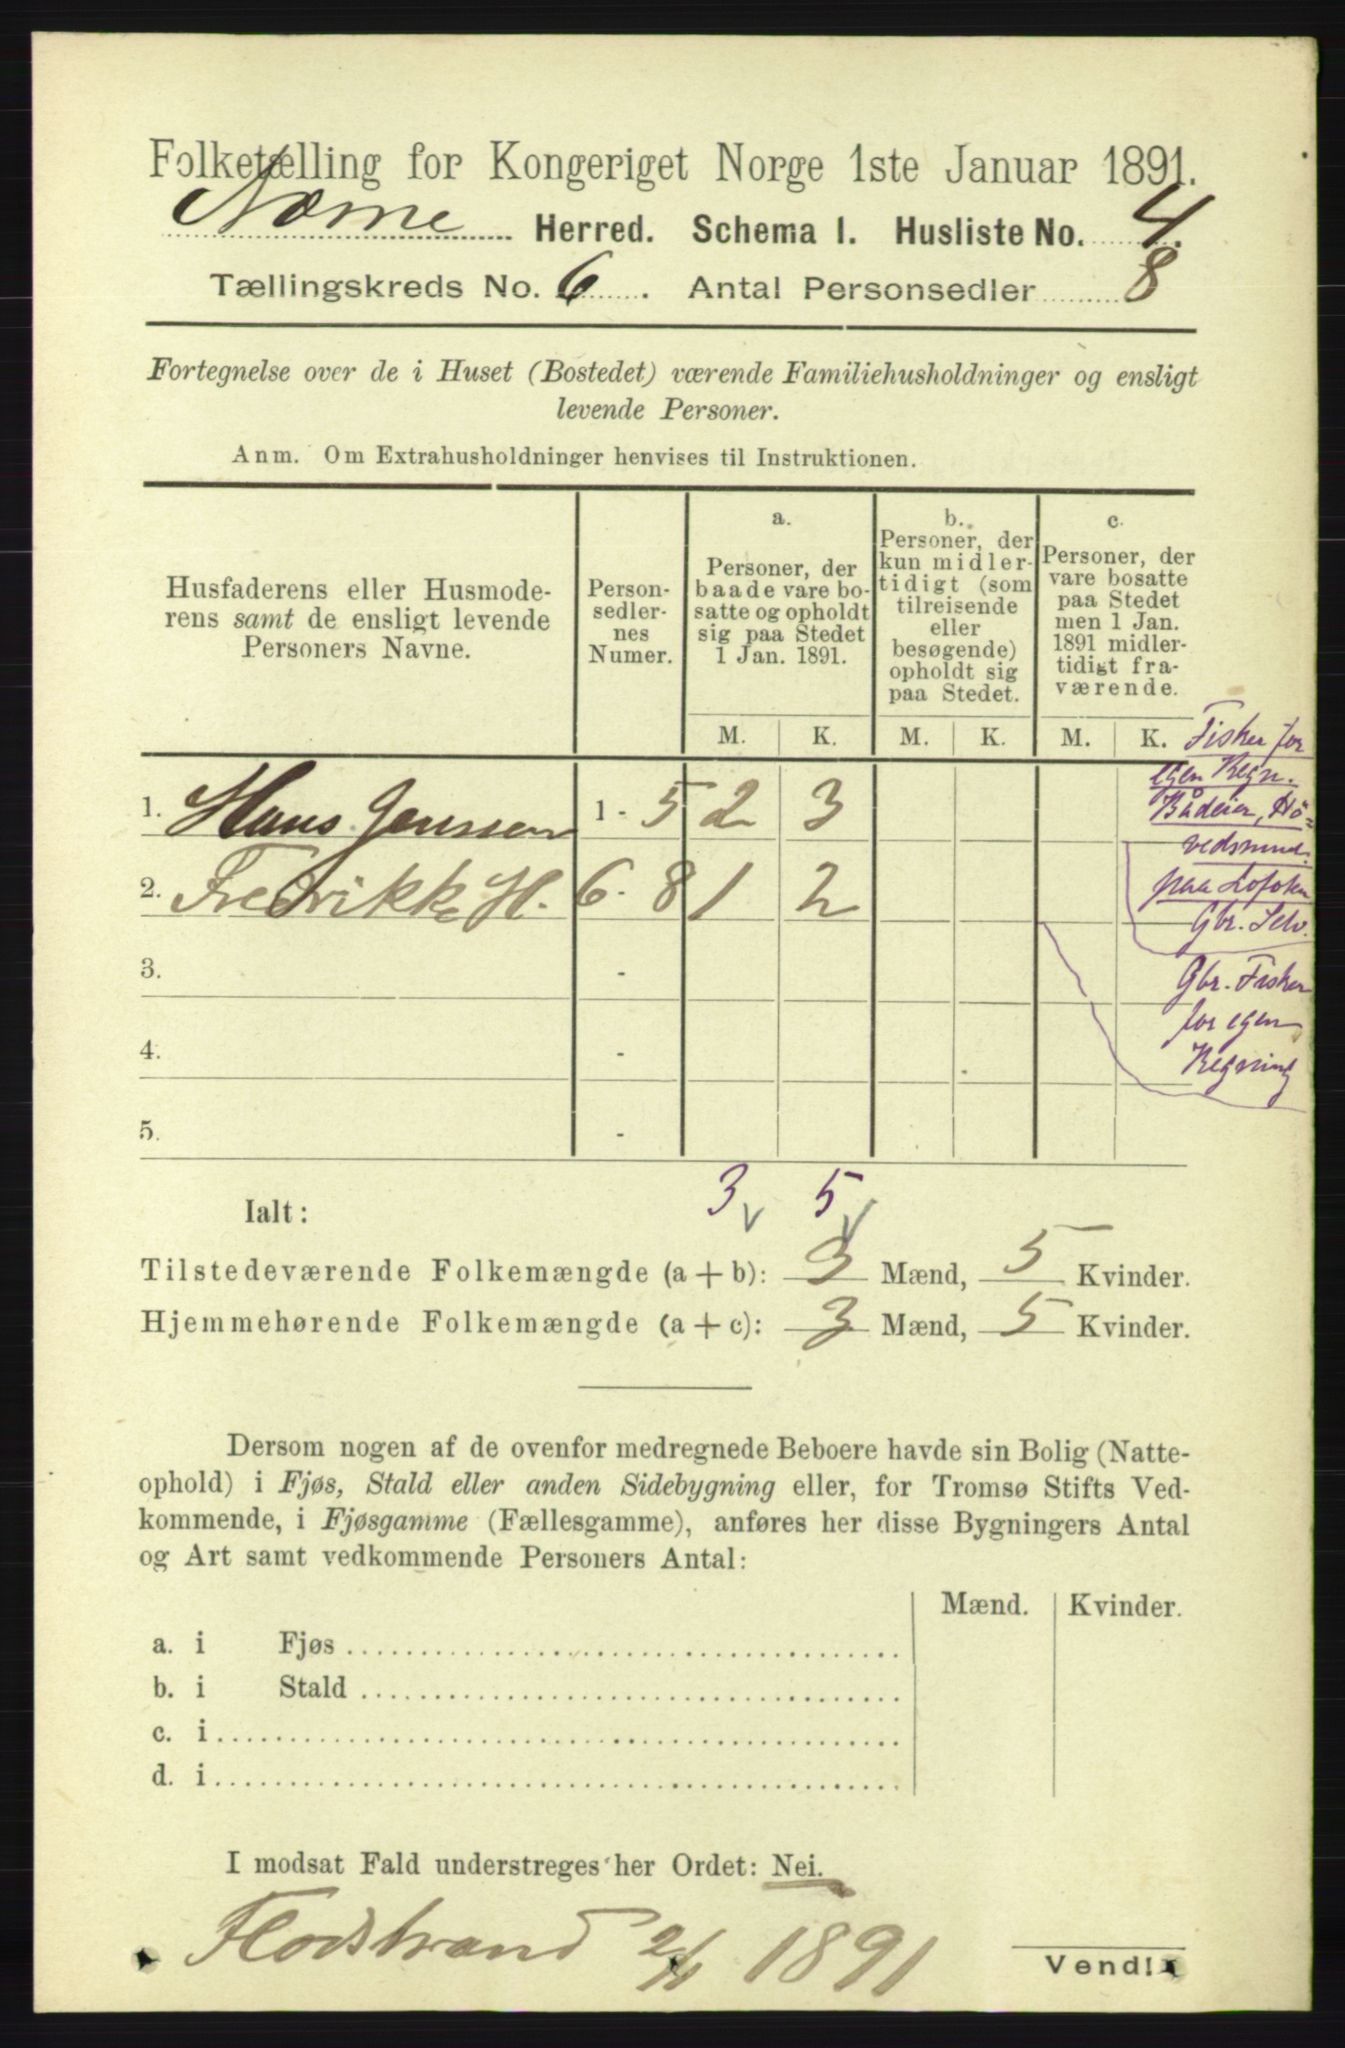 Folketælling for Kongeriget Norge 1ste Januar 1891.
Næsne Herred. Schema I. Husliste No. 4.
Tællingskreds No. 6. Antal Personsedler 8
Fortegnelse over de i Huset (Bostedet) værende Familiehusholdninger og ensligt
levende Personer.
Anm. Om Extrahusholdninger henvises til Instruktionen.
Husfaderens eller Husmode-
rens samt de ensligt levende
Personers Navne.
Person-
sedler-
nes
Numer.
a.
Personer, der
baade vare bo-
satte og opholdt
sig paa Stedet
1 Jan. 1891.
b.
Personer, der
kun midler-
tidigt (som
tilreisende
eller
besøgende)
opholdt sig
paa Stedet.
c.
Personer, der
vare bosatte
paa Stedet
men 1 Jan.
1891 midler-
tidigt fra-
værende.
M. K. M. K. M. K.
1. Hans Jenssen 1 - 5 2 3
2. Fredrikke H. 6 - 8 1 2
3. -
4. -
5. -
Fisker for
egen Regn.
Bådeier, Hö=
vedsmnd.
paa Lofoten
Gbr. Selv.
Gbr. Fisker
for egen
Regning
3 5
Ialt:
Tilstedeværende Folkemængde (a + b): 3 Mænd, 5 Kvinder.
Hjemmehørende Folkemængde (a + c): 3 Mænd, 5 Kvinder.
Dersom nogen af de ovenfor medregnede Beboere havde sin Bolig (Natte-
ophold) i Fjøs, Stald eller anden Sidebygning eller, for Tromsø Stifts Ved-
kommende, i Fjøsgamme (Fællesgamme), anføres her disse Bygningers Antal
og Art samt vedkommende Personers Antal:
Mænd. Kvinder.
a. i Fjøs
b. i Stald
c. i
d. i
I modsat Fald understreges her Ordet: Nei.
Flodstrand 2/1 1891
Vend!